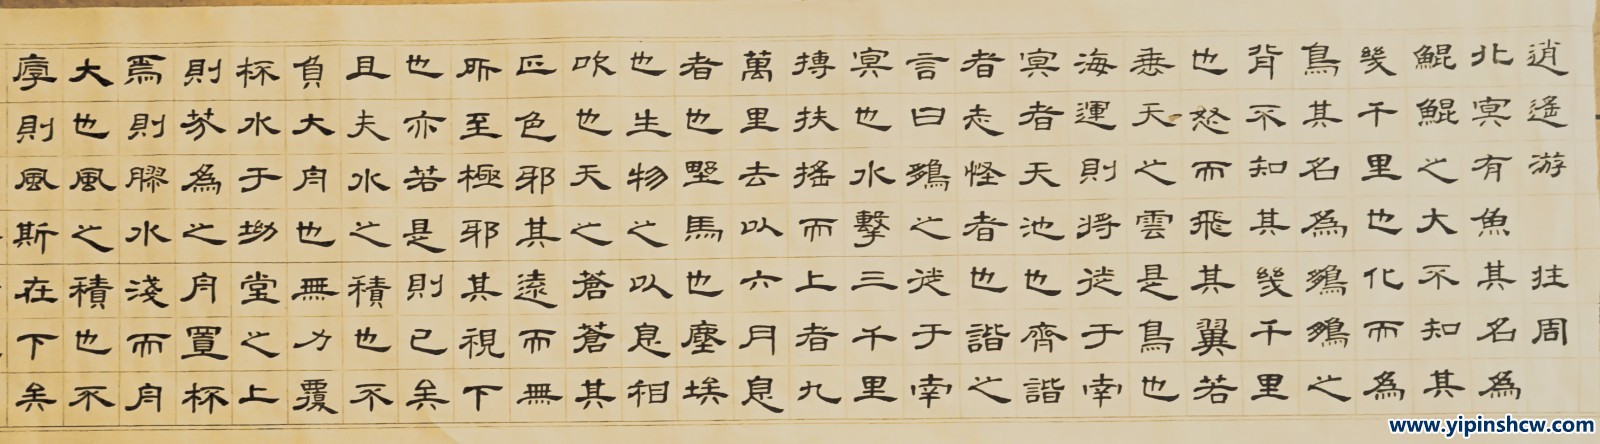 逍遙游 莊周
北冥有魚其名為
鯤鯤之大不知其
幾千里也化而為
鳥其名為鵬鵬之
背不知其幾千里
也怒而飛其翼若
垂天之雲是鳥也
海運則將徙于南
冥者天池也齊諧
者志怪者也諧之
言曰鵬之徙于南
冥也水擊三千里
摶扶搖而上者九
萬里去以六月息
者也野馬也塵埃
也生物之以息相
吹也天之蒼蒼其
正色邪其遠而無
所至極邪其視下
也亦若是則已矣
且夫水之積也不
負大舟也無力覆
杯水于坳堂之上
則芥為之舟置杯
焉則膠水淺而舟
大也風之積也不
厚則風斯在下矣
www.yipinshcw.com